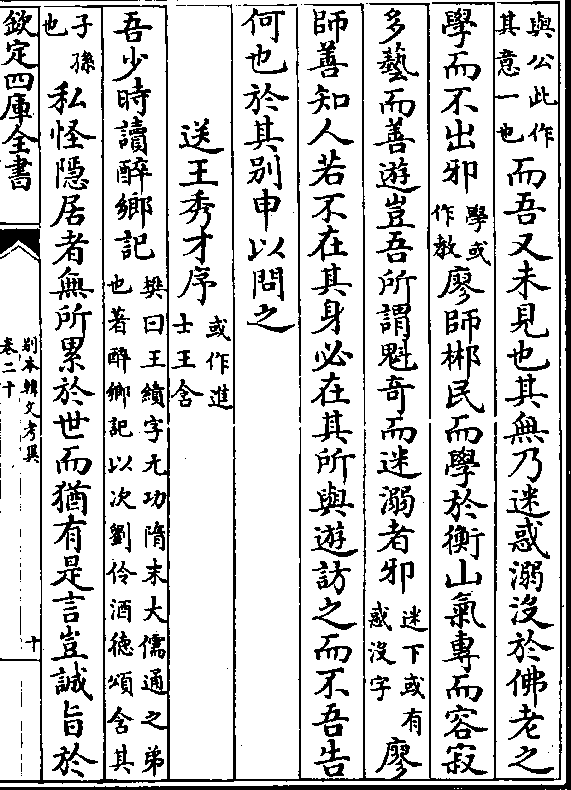 與公此作
其意一也
而吾又未見也其無乃迷惑溺沒於佛老之
學而不出邪
學或
作教
廖師郴民而學於衡山氣專而容寂
多藝而善遊豈吾所謂魁奇而迷溺者邪
迷下或有
惑沒字
廖
師善知人若不在其身必在其所與遊訪之而不吾告
何也於其别申以問之
送王秀才序
或作進
士王含
吾少時讀醉鄉記
樊曰王績字无功隋末大儒通之弟
也著醉鄉記以次劉伶酒德頌含其
子孫
也
私怪隱居者無所累於世而猶有是言豈誠旨於
欽定四庫全書
别本韓文考異
卷二十
十